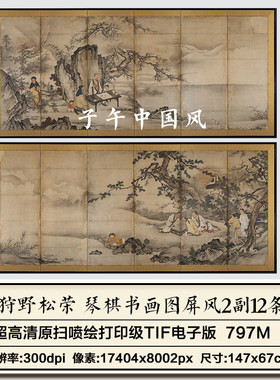 子午中国风
狩野松荣 琴棋书画图屏风2副12条
超高清原扫喷绘打印级TIF电子版 797M
辨率:300dpi 像素:17404x8002px 尺寸:147x67c